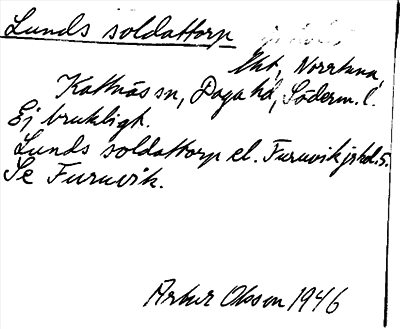 Lunds soldattorp
Utt, Norrtuna,
Kattnäs sn, Daga hd, Söderm. l.
Ej brukligt.
Lunds soldattorp el. Furuvik jrhd. 5.
Se Furuvik.
Artur Olsson 1946